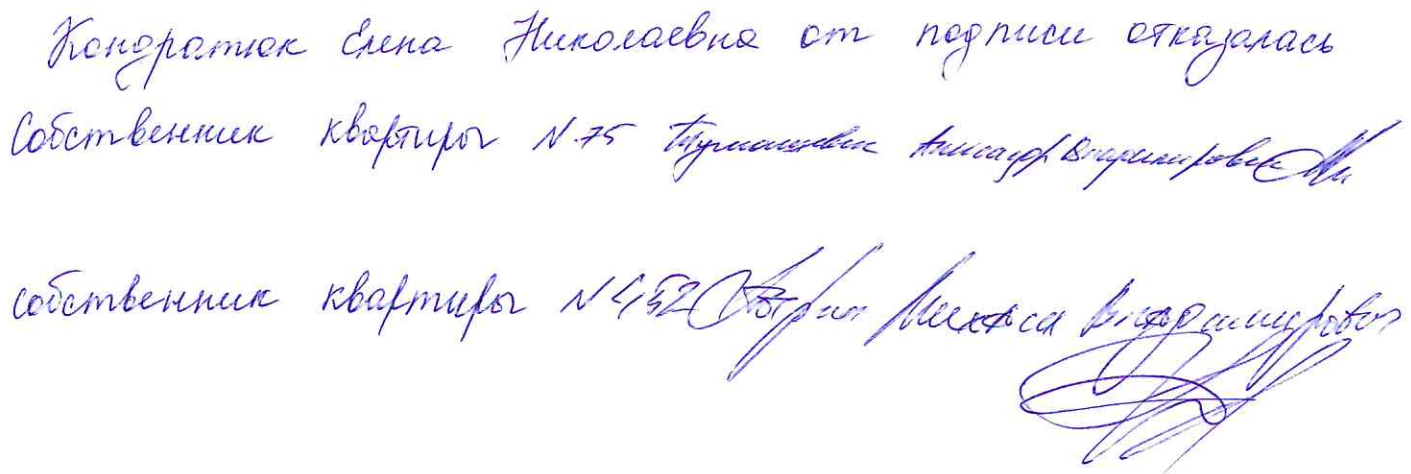 Кондратюк Елена Николаевна от подписи отказалась
Собственник квартиры N 75 Александр Владимирович
собственник квартиры N Михаил Владимирович